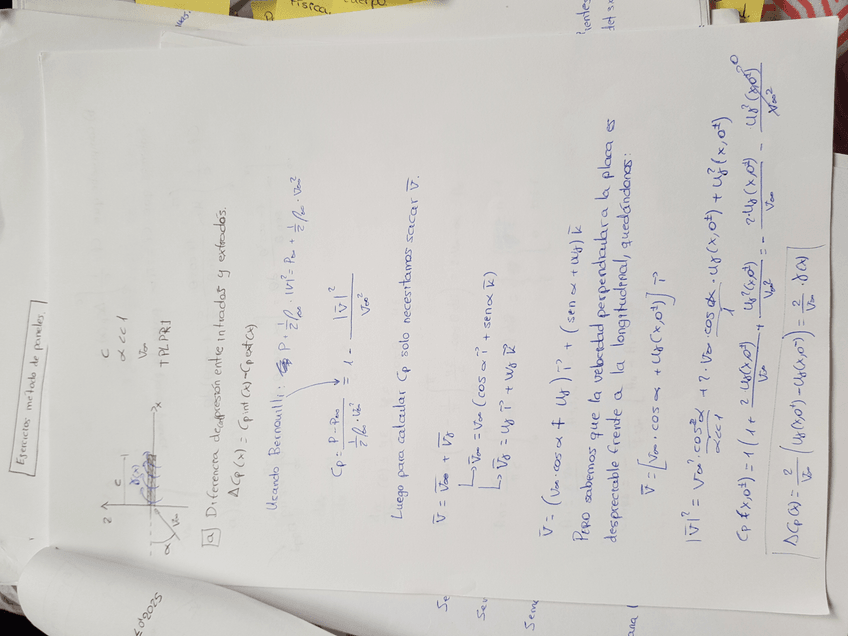 Ejercicios método de paneles.
z
c
γ(x)
x
α
V∞
c
α << 1
V∞
TPLPR1
a) Diferencia de presión entre intradós y extradós.
ΔCp(x) = Cpint(x) - Cpext(x)
Usando Bernouilli: P + 1/2 ρ∞ · |V|² = P∞ + 1/2 ρ∞ · V∞²
Cp = (P - P∞) / (1/2 ρ∞ · V∞²) = 1 - |V̄|² / V∞²
Luego para calcular Cp solo necesitamos sacar V̄.
V̄ = V̄∞ + V̄γ
↳ V̄∞ = V∞ (cos α i⃗ + sen α k⃗)
↳ V̄γ = uγ i⃗ + wγ k⃗
V̄ = (V∞ · cos α + uγ) i⃗ + (sen α + wγ) k⃗
Pero sabemos que la velocidad perpendicular a la placa es
despreciable frente a la longitudinal, quedándonos:
V̄ = [V∞ · cos α + uγ(x,0±)] i⃗
|V̄|² = V∞² · cos²α + 2 · V∞ · cos α · uγ(x,0±) + uγ²(x,0±)
α<<1
1
Cp(x,0±) = 1 - (1 + 2·uγ(x,0±)/V∞ + uγ²(x,0±)/V∞²) = - 2·uγ(x,0±)/V∞ - uγ²(x,0±)/V∞²
0
ΔCp(x) = 2/V∞ (uγ(x,0⁺) - uγ(x,0⁻)) = 2/V∞ · γ(x)
Física
cuerpo
2025